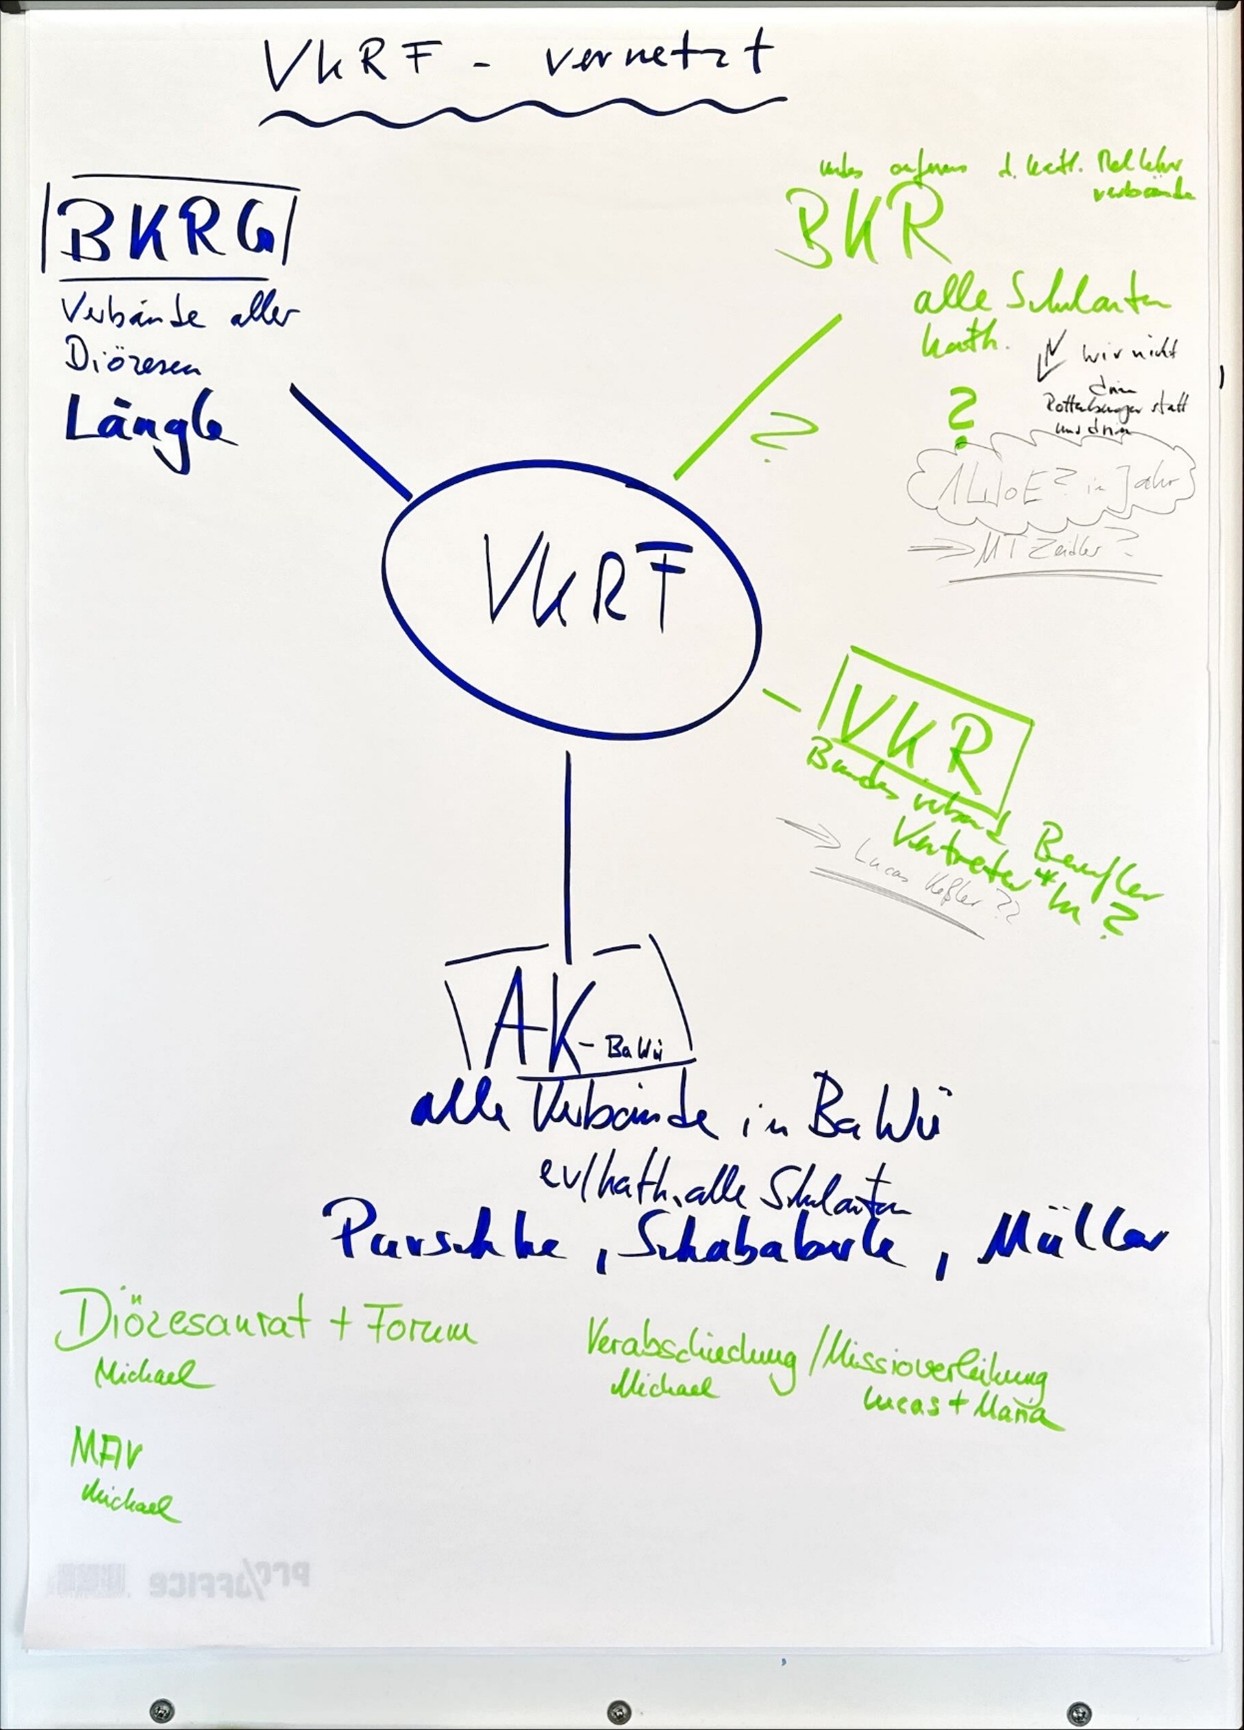 VKRF - vernetzt
BKRG
Verbände aller
Diözesen
Längle
d. kath. Rel lehr
verbände
BKR
alle Schularten
kath.
wir nicht
drin
Rottenburger statt
uns drin
?
?
in Jahr
→ MT Zeidler?
VKRF
VKR
Bundesverband Berufler
Vertreter*in?
→ Lucas Keßler??
AK-BaWü
alle Verbände in BaWü
ev/kath, alle Schularten
Purschke, Schababerle, Müller
Diözesanrat + Forum
Michael
Verabschiedung/Missioverleihung
Michael
Lucas + Maria
MAV
Michael